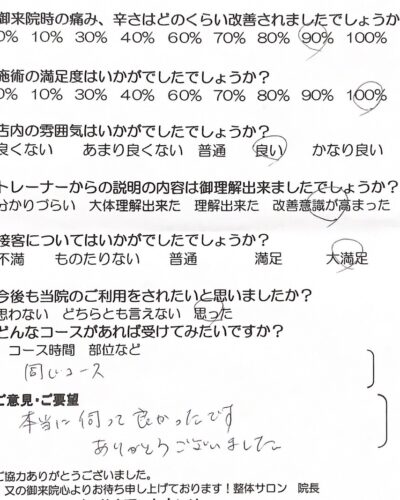 御来院時の痛み、辛さはどのくらい改善されましたでしょうか
0% 10% 30% 40% 60% 70% 80% 90% 100%
施術の満足度はいかがでしたでしょうか?
0% 10% 30% 40% 60% 70% 80% 90% 100%
店内の雰囲気はいかがでしたでしょうか?
良くない あまり良くない 普通 良い かなり良い
トレーナーからの説明の内容は御理解出来ましたでしょうか?
分かりづらい 大体理解出来た 理解出来た 改善意識が高まった
接客についてはいかがでしたでしょうか?
不満 ものたりない 普通 満足 大満足
今後も当院のご利用をされたいと思いましたか?
思わない どちらとも言えない 思った
どんなコースがあれば受けてみたいですか?
コース時間 部位など
同じコース
ご意見・ご要望
本当に伺って良かったです
ありがとうございました
ご協力ありがとうございました。
又の御来院心よりお待ち申し上げております!整体サロン 院長